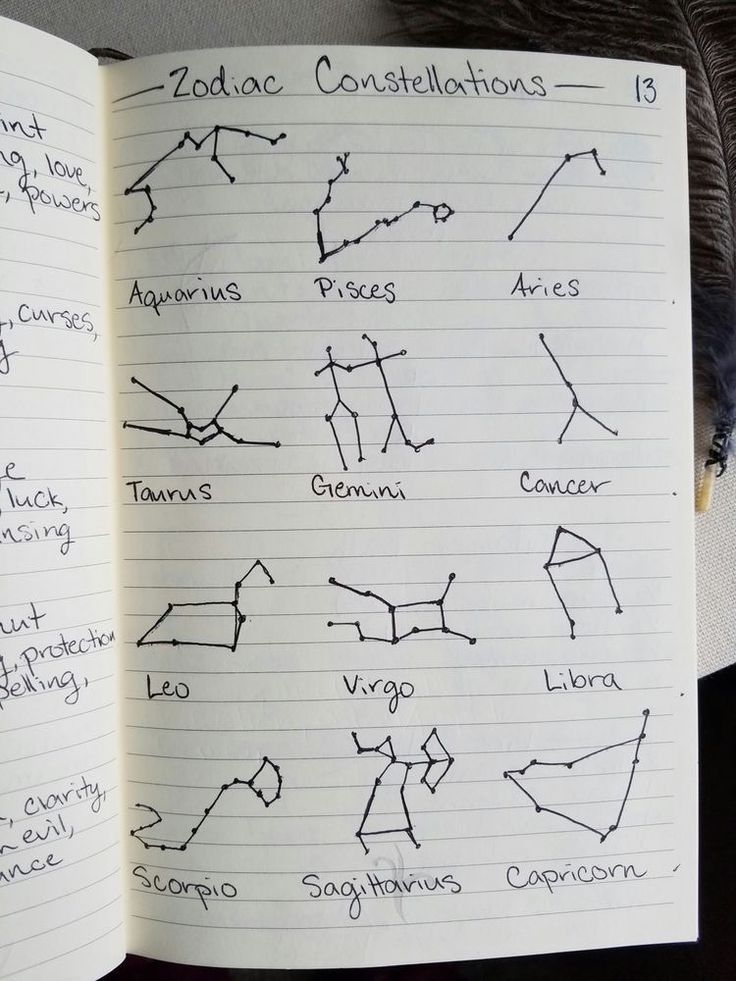 int
ng, love,
, powers
, curses,
g
e
luck,
nsing
ut
, protection
pelling,
, clarity,
evil,
ance
Zodiac Constellations 13
Aquarius Pisces Aries
Taurus Gemini Cancer
Leo Virgo Libra
Scorpio Sagittarius Capricorn